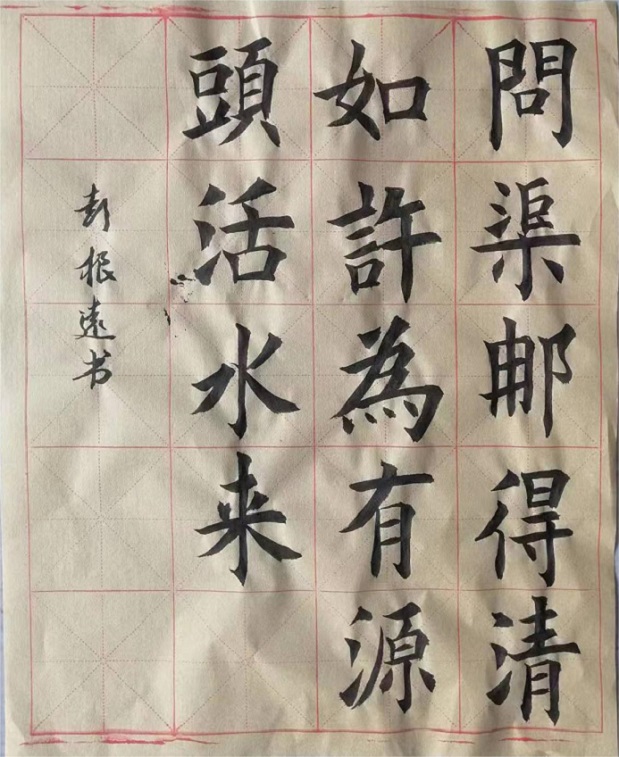 問渠邮得清
如許為有源
頭活水来
彭根遠书